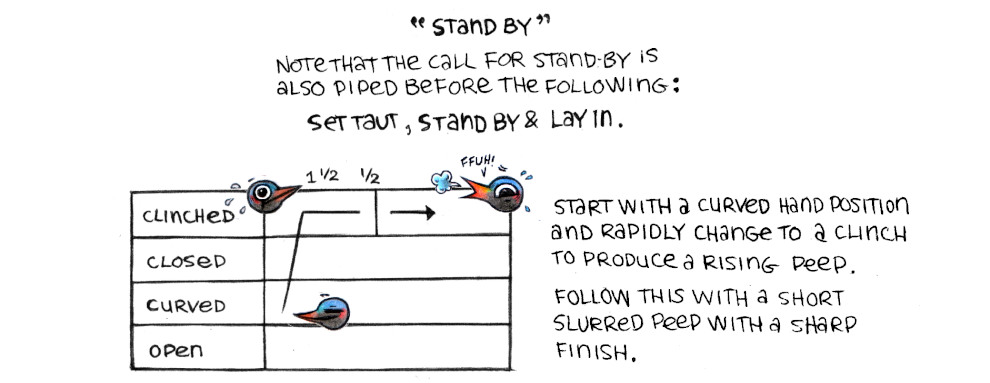 “STAND BY”
NOTE THAT THE CALL FOR STAND-BY IS
ALSO PIPED BEFORE THE FOLLOWING:
SET TAUT, STAND BY & LAY IN.
FFUH!
1 1/2 1/2
CLINCHED
CLOSED
CURVED
OPEN
START WITH A CURVED HAND POSITION
AND RAPIDLY CHANGE TO A CLINCH
TO PRODUCE A RISING PEEP.
FOLLOW THIS WITH A SHORT
SLURRED PEEP WITH A SHARP
FINISH.